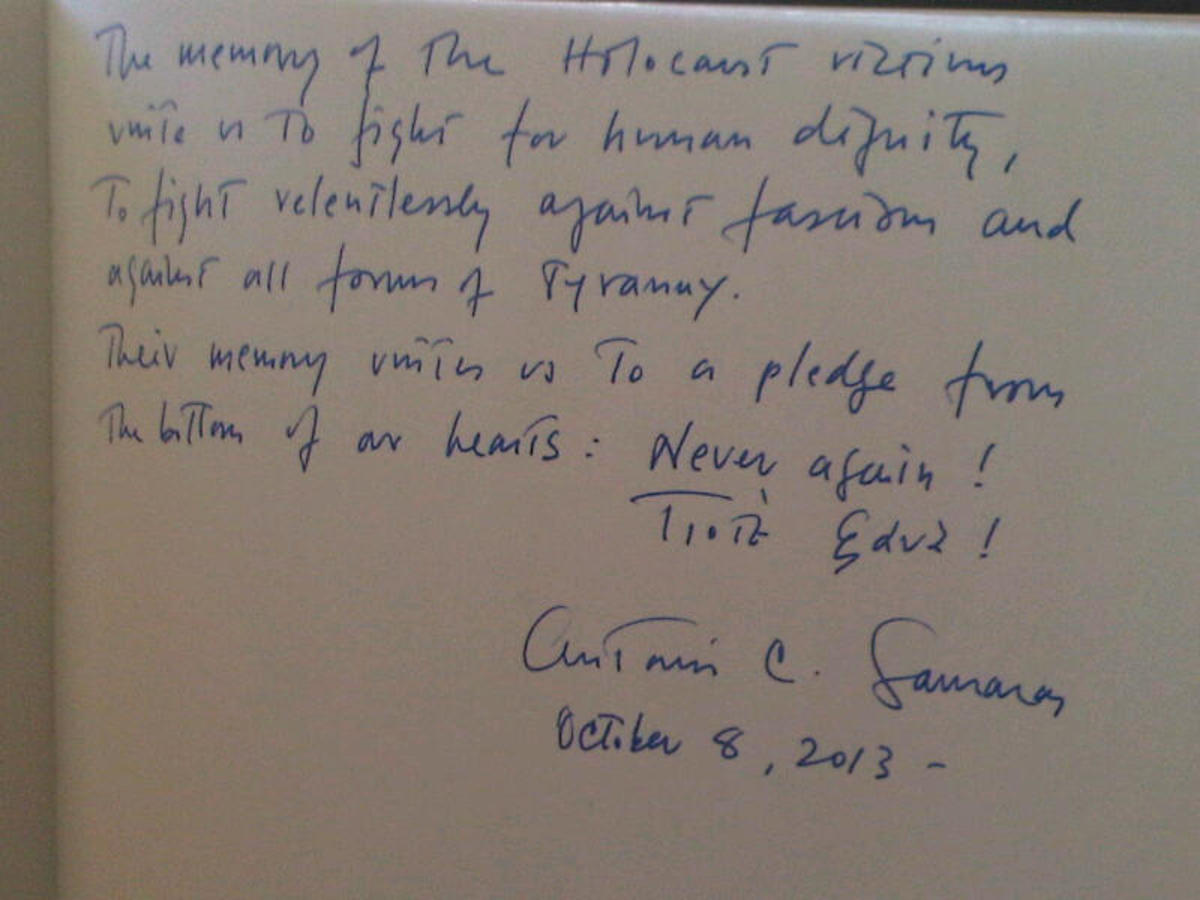 The memory of the Holocaust victims
unite us to fight for human dignity,
To fight relentlessly against fascism and
against all forms of Tyranny.
Their memory unites us to a pledge from
the bottom of our hearts: Never again!
Ποτέ ξανά!
Antonis C. Samaras
October 8, 2013 -